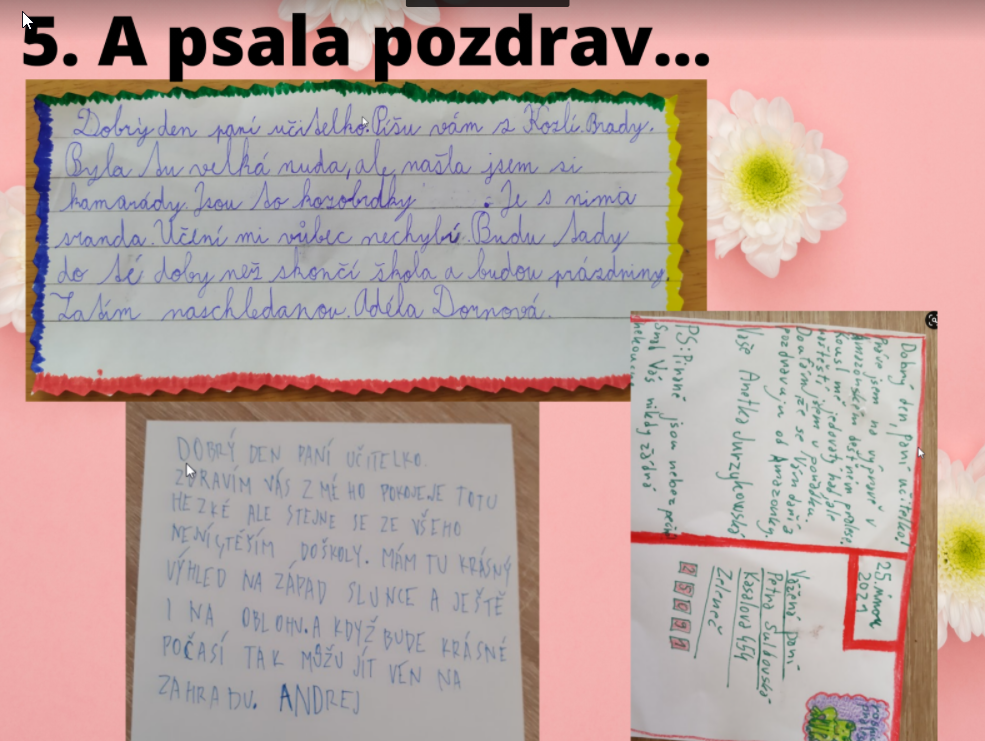 5. A psala pozdrav...
Dobrý den paní učitelko. Píšu vám z Kozlí Brady.
Byla tu velká nuda, ale našla jsem si
kamarády. Jsou to kozobrdky. Je s nima
sranda. Učení mi vůbec nechybí. Budu tady
do té doby než skončí škola a budou prázdniny.
Zatím naschledanou. Adéla Dornová.
DOBRÝ DEN PANÍ UČITELKO.
ZDRAVÍM VÁS Z MÉ HO POKOJEJE TOTU
HEZKÉ ALE STEJNE SE ZE VŠEHO
NENÍ TĚŠÍM DOŠKOLY. MÁM TU KRÁSNÝ
VÝHLED NA ZÁPAD SLUNCE A JEŠTĚ
I NA OBLOHU. A KDYŽ BUDE KRÁSNÉ
POČASÍ TAK MŮŽU JÍT VEN NA
ZAHRADU. ANDREJ
Dobrý den, paní učitelko!
Právě jsem na výpravě v
Amazonském deštném pralese.
Kousl mě jedovatý had, ale
naštěstí jsem v pořádku.
Doufám, že se Vám daří a
pozdravuju od Amazonky.
Vaše Anetka Jurzykowská
PS: Piraně jsou nebezpečné
Snad Vás nikdy žádná
nekousne
25. února
2021
Vážená paní
Petra
Kasalova 454
Zeleneč
25091